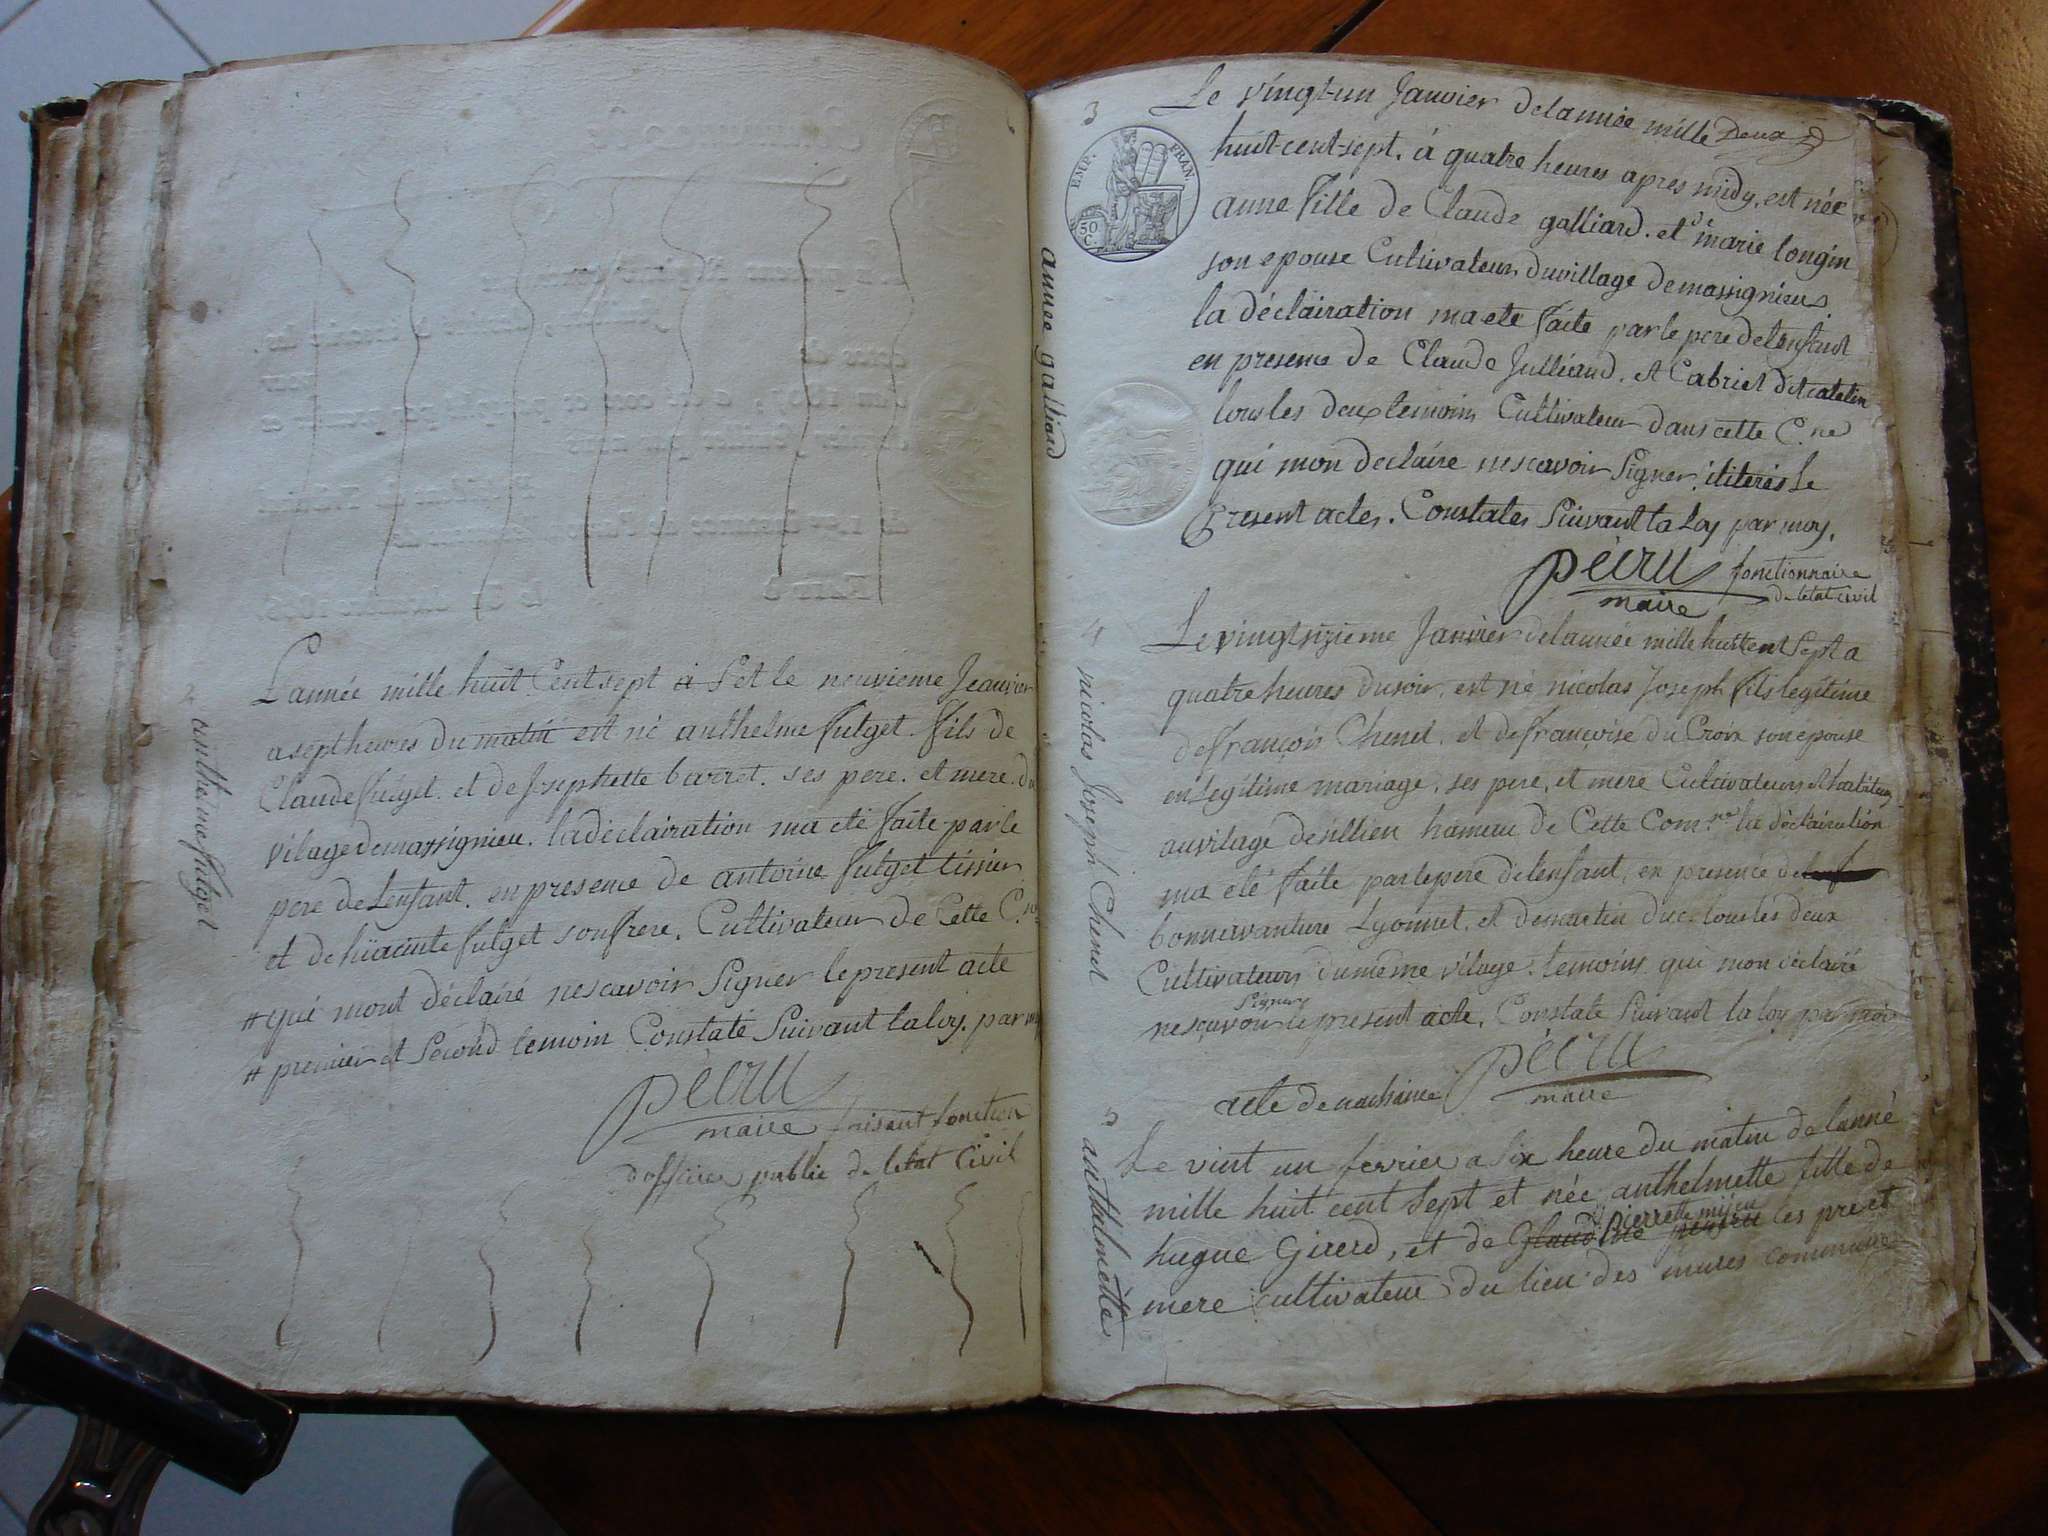 2
anthelme fulget
L'année mille huit Cent sept à Set le neuvieme Jeanvier
a sept heures du matin est né anthelme fulget. fils de
Claude fulget. et de Josephette barret. ses pere. et mere. du
vilage demassignieu. la déclairation ma eté faite par le
pere de Lenfant. en presence de antoine fulget tissier
et de hiacinte fulget son frere. Cultivateur de Cette C.ne
# qui mont déclairé nescavoir Signer le present acte
# premier et Second temoin Constaté Suivant la loy. par moy
pécru
maire faisant fonction
dofficier public de letat Civil
3
annee galliard
EMP. FRAN.
50 C.
Le vingt-un Janvier delannée mille deux
huit-cent-sept. à quatre heures apres midy, est née
anne fille de Claude galliard. et marie longin
son epouse Cultivateurs duvillage demassignieus
la déclairation ma eté faite par le pere delenfant
en presence de Claude Julliand. et Cabriel
tous les deux temoins Cultivateur dans cette C.ne
qui mon declaire nescavoir Signer, Le
Present actes. Constates Suivant la Loy par moy.
pécru fonctionnaire
maire de letat civil
4
nicolas Joseph Chenet
Le vingtsizieme Janvier delannée mille huitcent Sept a
quatre heures dusoir, est né nicolas Joseph fils legitime
defrançois Chenet. et defrançoise du Croix son epouse
en Legitime mariage, ses pere, et mere Cultivateurs et habitans
auvilage desillien hameau de Cette Com.ne la déclairation
ma eté faite parlepere delenfant, en presence de
bonnavanture Lyonnet, et demartin duc. tous les deux
Cultivateurs dumême vilage. temoins qui mon déclairé
Signer
nesçavoir le present acte, Constaté Suivant la loy par moi
pécru
acte de naissance maire
5
anthalmette
Le vint un fevrier a Six heure du matin de lanné
mille huit cent Sept et née anthelmette fille de
pierrette mijeu
hugue Girerd, et de Glaudine les pre et
mere cultivateur du lieu des mures commune